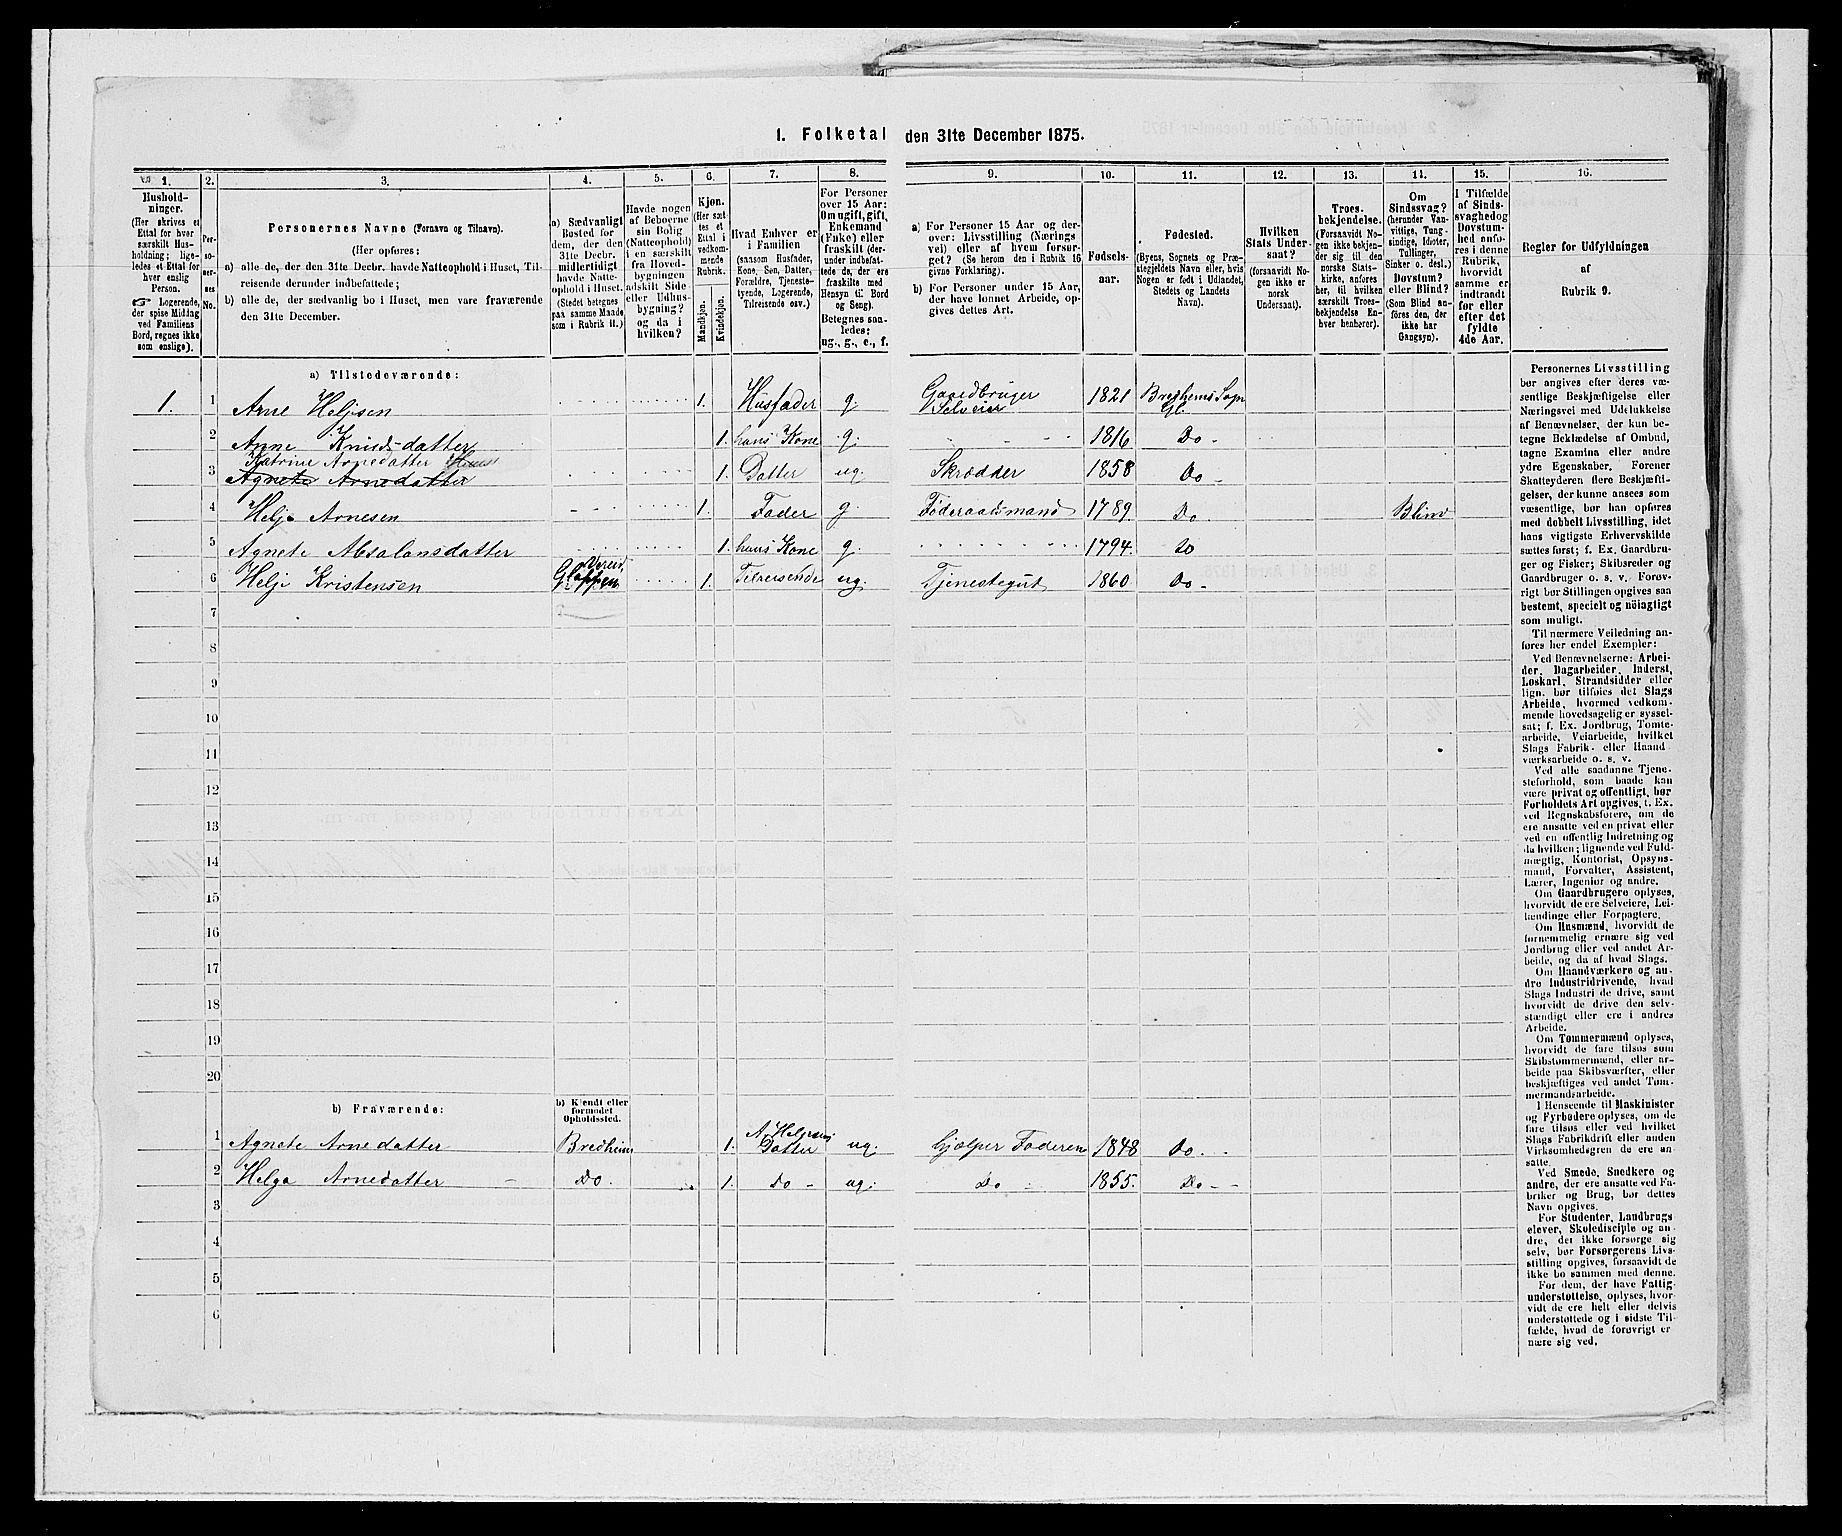 1. Folketal den 31te December 1875.
1. 2. 3. 4. 5. 6. 7. 8. 9. 10. 11. 12. 13. 14. 15. 16.
Husholdninger.
(Her skrives et
Ettal for hver
særskilt Husholdning;
ligeledes et Ettal for
hver enslig
Person.
☞ Logerende,
der spise Middag
ved Familiens
Bord, regnes ikke
som enslige).
Personernes No.
Personernes Navne (Fornavn og Tilnavn).
(Her opføres:
a) alle de, der den 31te Decbr. havde Natteophold i Huset, Tilreisende derunder indbefattede;
b) alle de, der sædvanlig bo i Huset, men vare fraværende
den 31te December.
a) Sædvanligt
Bosted for
dem, der den
31te Decbr.
midlertidigt
havde Natteophold i Huset.
(Stedet betegnes
paa samme Maade
som i Rubrik 11.)
Havde nogen
af Beboerne
sin Bolig
(Natteophold)
i en særskilt
fra Hovedbygningen
adskilt Side
eller Udhusbygning?
og da i
hvilken?
Kjøn.
(Her sættes et
Ettal i
vedkommende
Rubrik.
Mandkjøn.
Kvindekjøn.
Hvad Enhver er
i Familien
(saasom Husfader,
Kone, Søn, Datter,
Forældre, Tjenestetyende, Logerende,
Tilreisende osv.)
For Personer
over 15 Aar:
Om ugift, gift,
Enkemand
(Enke) eller
fraskilt (derunder indbefattede de, der ere
fraskilte med
Hensyn til Bord
og Seng).
Betegnes saaledes:
ug., g., e., f.
a) For Personer 15 Aar og derover: Livsstilling (Nærings
vei) eller af hvem forsørget? (Se herom den i Rubrik 16
givne Forklaring).
b) For Personer under 15 Aar,
der have lønnet Arbeide, opgives dettes Art.
Fødselsaar.
Fødested.
(Byens, Sognets og Præstegjeldets Navn eller, hvis
Nogen er født i Udlandet,
Stedets og Landets
Navn).
Hvilken
Stats Undersaat?
(forsaavidt Nogen ikke er
norsk
Undersaat).
Troesbekjendelse.
(Forsaavidt Nogen ikke bekjender sig til den
norske Statskirke, anføres
her, til hvilken
særskilt Troesbekjendelse Enhver henhører).
Om
Sindssvag?
(herunder Vanvittige, Tungsindige, Idioter,
Tullinger,
Sinker o. desl.)
Døvstum?
eller Blind?
(Som Blind anføres den, der
ikke har
Gangsyn).
I Tilfælde
af Sindssvaghed og
Døvstumhed anføres i denne
Rubrik,
hvorvidt
samme er
indtraadt
før eller
efter det
fyldte
4de Aar.
Regler for Udfyldningen
af
Rubrik 9.
a) Tilstedeværende:
1. 1 Arne Heljesen 1. Husfader g. Gaardbruger Selveier 1821 Bredheims Sogn Gl.
2 Anne Knudsdatter 1. hans Kone g. 1816 Do
Katrine Arnedatter
3 Agnete Arnedatter 1. Datter ug. Skrædder 1858 Do
4 Helje Arnesen 1. Fader g. Føderaadsmand 1789. Do Blind
5 Agnete Absalonsdatter 1. hans Kone g. 1794. Do
6 Helje Kristensen Gloppen 1. Tilreisende ug. Tjenestegut 1860 Do
7
8
9
10
11
12
13
14
15
16
17
18
19
20
b) Fraværende:
b) Kjendt eller
formodet
Opholdssted.
1 Agnete Arnedatter Bredheim 1. A. Heljesens Datter ug. hjælper Faderen 1848 Do
2 Helga Arnedatter Do. 1. Do ug. Do 1855. Do
3
4
5
6
Personernes Livsstilling
bør angives efter deres væsentlige Beskjæftigelse eller
Næringsvei med Udelukkelse
af Benævnelser, der kun betegne Beklædelse af Ombud,
tagne Examina eller andre
ydre Egenskaber. Forener
Skatteyderen flere Beskjæftigelser, der kunne ansees som
væsentlige, bør han opføres
med dobbelt Livsstilling, idet
hans vigtigste Erhvervskilde
sættes først; f. Ex. Gaardbruger og Fisker; Skibsreder og
Gaardbruger o. s. v. Forøvrigt bør Stillingen opgives saa
bestemt, specielt og nöiagtigt
som muligt.
Til nærmere Veiledning anføres her endel Exempler:
Ved Benævnelserne: Arbeider, Dagarbeider, Inderst,
Løskarl, Strandsidder eller
lign. bør tilføies det Slags
Arbeide, hvormed vedkommende hovedsagelig er sysselsat; f. Ex. Jordbrug, Tomtearbeide, Veiarbeide, hvilket
Slags Fabrik- eller Haandværksarbeide o. s. v.
Ved alle saadanne Tjenesteforhold, som baade kan
være privat og offentligt, bør
Forholdets Art opgives, t. Ex.
ved Regnskabsførere, om de
ere ansatte ved en privat eller
ved en offentlig Indretning og
da hvilken; lignende ved Fuldmægtig, Kontorist, Opsynsmand, Forvalter, Assistent,
Lærer, Ingeniør og andre.
Om Gaardbrugere oplyses,
hvorvidt de ere Selveiere, Leilændinge eller Forpagtere.
Om Husmænd, hvorvidt de
fornemmelig ernære sig ved
Jordbrug eller ved andet Arbeide, og da af hvad Slags.
Om Haandværkere og andre Industridrivende, hvad
Slags Industri de drive, samt
hvorvidt de drive den selvstændigt eller ere i andres
Arbeide.
Om Tømmermænd oplyses,
hvorvidt de fare tilsøs som
Skibstømmermænd, eller arbeide paa Skibsværfter, eller
beskjæftiges ved andet Tømmermandsarbeide.
I Henseende til Maskinister
og Fyrbødere oplyses, om de
fare tilsøs eller ved hvilket
Slags Fabrikdrift eller anden
Virksomhedsgren de ere ansatte.
Ved Smede, Snedkere og
andre, der ere ansatte ved Fabriker og Brug, bør dettes
Navn opgives.
For Studenter, Landbrugselever, Skoledisciple og andre, der ikke forsørge sig
selv, bør Forsørgerens Livsstilling opgives, forsaavidt de
ikke bo sammen med denne.
For dem, der have Fattigunderstøttelse, oplyses, hvorvidt de ere helt eller delvis
understøttede og i sidste Tilfælde, hvad de forøvrigt ernære sig ved.